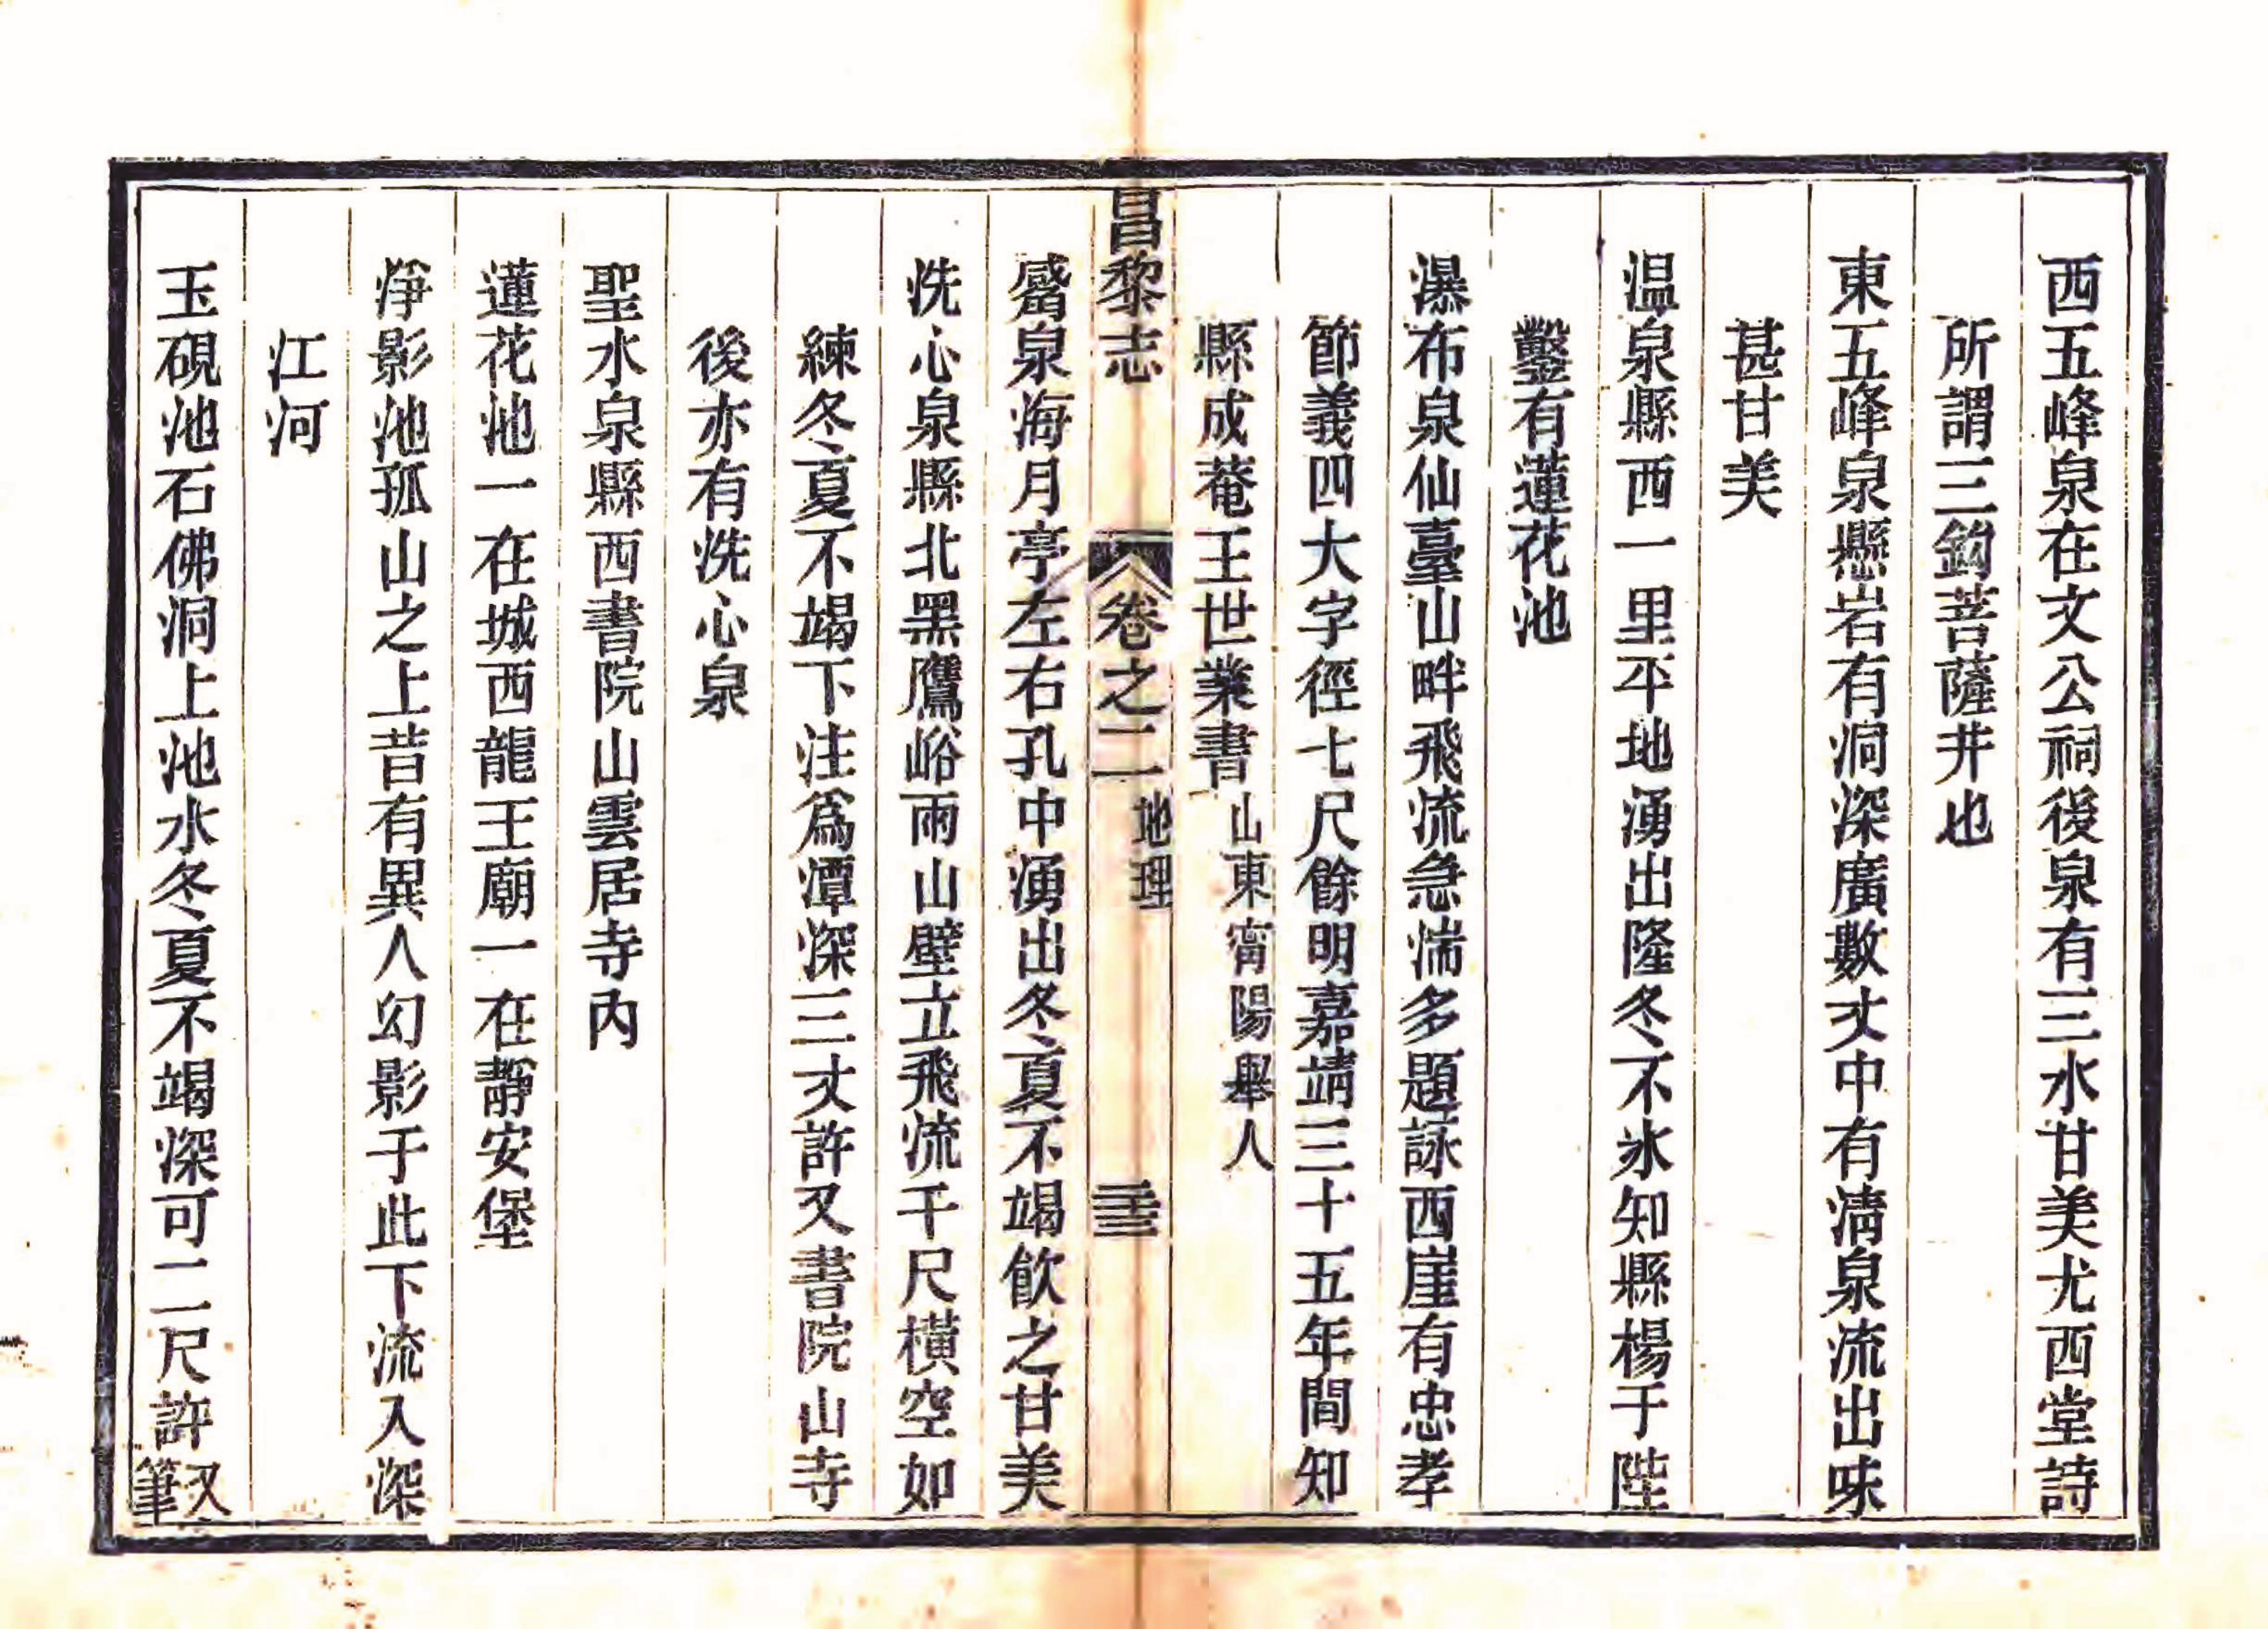 西五峰泉在文公祠後泉有三水甘美尤西堂詩
所謂三鈎菩薩井也
東五峰泉懸岩有洞深廣數丈中有清泉流出味
甚甘美
温泉縣西一里平地湧出隆冬不氷知縣楊于陛
鑿有蓮花池
瀑布泉仙臺山畔飛流急湍多題詠西崖有忠孝
節義四大字徑七尺餘明嘉靖三十五年間知
縣成菴王世業書山東甯陽舉人
昌黎志 卷之二 地理 三十三
觱泉海月亭左右孔中湧出冬夏不竭飮之甘美
洗心泉縣北黑鷹峪兩山壁立飛流千尺橫空如
練冬夏不竭下注爲潭深三丈許又書院山寺
後亦有洗心泉
聖水泉縣西書院山雲居寺內
蓮花池一在城西龍王廟一在靜安堡
淨影池孤山之上昔有異人幻影于此下流入深
江河
玉硯池石佛洞上池水冬夏不竭深可二尺許又
筆